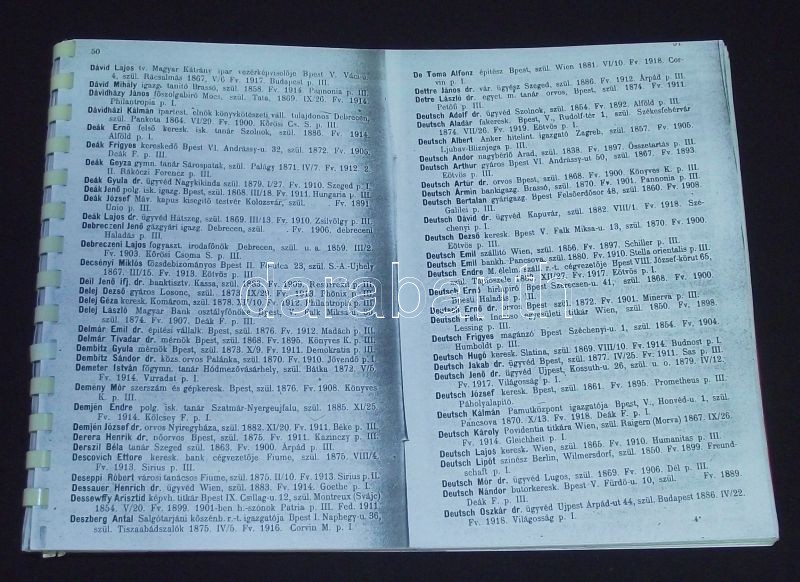 50
Dávid Lajos tv. Magyar Kátrány ipar vezérképviselője Bpest V. Váci u.
4, szül. Rácsalmás 1867, V/6 Fv. 1917. Budapest p. III.
Dávid Mihály igazg. tanító Brassó, szül. 1858. Fv. 1914 Pannonia p. III.
Dávidházy János főszolgabíró Mocs, szül. Tata, 1869. IX/26. Fv. 1914.
Philantropia p. I.
Dávidházi Kálmán ipartest. elnök könyvkötészeti váll. tulajdonos Debrecen,
szül. Pankota 1864. VI/29. Fv. 1900. Kőrösi Cs. S. p. III.
Deák Ernő felső keresk. isk. tanár Szolnok, szül. 1886. Fv. 1914.
Alföld p. I.
Deák Frigyes kereskedő Bpest VI. Andrássy-u. 32, szül. 1872. Fv. 1906.
Deák F. p. III.
Deák Geyza gymn. tanár Sárospatak, szül. Palúgy 1871. IV/7. Fv. 1912
II. Rákóczi Ferencz p. III.
Deák Gyula dr. ügyvéd Nagykikinda szül. 1879. I/27. Fv. 1910. Szeged p. I.
Deák Jenő polg. isk. igazg. Bpest, szül. 1868. III/18. Fv. 1911. Hungaria p. III.
Deák József Máv. kapus kisegítő testvér Kolozsvár, szül. Fv. 1891.
Unio p. III.
Deák Lajos dr. ügyvéd Hátszeg, szül. 1869. III/13. Fv. 1910. Zsilvölgy p. III.
Debreczeni Jenő gázgyári igazg. Debrecen, szül. . Fv. 1906. debreceni
Haladás p. III.
Debreczeni Lajos fogyaszt. irodafőnök Debrecen, szül. u. a. 1859. III/2.
Fv. 1903. Kőrösi Csoma S. p. III.
Decsényi Miklós Gőzdebizományos Bpest II. Fő-utca 23, szül. S.-A.-Ujhely
1867. III/15. Fv. 1913. Eötvös p. III.
Deil Jenő ifj. dr. banktisztv. Kassa, szül. 1885. Fv. 1909. Resurrexit p. I.
Delej Dezső gyáros Losonc, szül. 1873. IX/29. Fv. 1913. Phönix p. I.
Delej Géza keresk. Komárom, szül. 1878. X/10. Fv. 1912. Philantropia p. III.
Delej László Magyar Bank osztályfőnök Bpest V. Falk Miksa-u.
szül. 1874. Fv. 1907. Deák F. p. III.
Delmár Emil dr. építési vállalk Bpest, szül. 1876. Fv. 1912. Madách p. III.
Delmár Tivadar dr. mérnök Bpest, szül. 1868. Fv. 1895. Könyves K. p. III.
Dembitz Gyula mérnök Bpest, szül. 1873. X/9. Fv. 1911. Demokratia p. III.
Dembitz Sándor dr. közs. orvos Palánka, szül. 1870. Fv. 1910. Jövendő p. I.
Demeter István főgymn. tanár Hódmezővásárhely, szül. Bátka 1872. V/5,
Fv. 1914. Virradat p. I.
Demény Mór szerszám és gépkeresk. Bpest, szül. 1876. Fv. 1908. Könyves
K. p. III.
Demjén Endre polg. isk. tanár Szatmár-Nyergeujfalu, szül. 1885. XI/25.
Fv. 1914. Kölcsey F. p. I.
Demjén József dr. orvos Nyiregyháza, szül. 1882. XI/20. Fv. 1911. Béke p. III.
Derera Henrik dr. nőorvos Bpest, szül. 1875. Fv. 1911. Kazinczy p. III.
Derszil Béla tanár Szeged szül. 1863. Fv. 1900. Árpád p. III.
Descovich Ettore keresk. bank, cégvezetője Fiume, szül. 1875. VIII/4,
Fv. 1913. Sirius p. III.
Deseppi Róbert városi tanácsos Fiume, szül. 1875. II/10. Fv. 1913. Sirius p. II.
Dessauer Henrich dr. ügyvéd Wien, szül. 1883. Fv. 1914. Goethe p. I.
Dessewffy Arisztid képvh. titkár Bpest IX. Csillag-u. 12, szül. Montreux (Svájc)
1854. V/20. Fv. 1899. 1901-ben h.-szónok Patria p. III. Fed. 1911.
Deszberg Antal Salgótarjáni köszénb. r.-t. igazgatója Bpest I. Naphegy-u. 36,
szül. Tiszaábádszalók 1875. IV/5. Fv. 1916. Corvin M. p. I.
51
De Toma Alfonz építész Bpest, szül. Wien 1881. VI/10. Fv. 1918. Cor-
vin p. I.
Dettre János dr. vár. ügyész Szeged, szül. 1886. Fv. 1912. Árpád p. III.
Detre László dr. egyet. m. tanár orvos, Bpest, szül. 1874. Fv. 1911
Petőfi p. III.
Deutsch Adolf dr. ügyvéd Szolnok, szül. 1854. Fv. 1892. Alföld p. III.
Deutsch Aladár fakeresk. Bpest, V., Rudolf-tér 1, szül. Székesfehérvár
1874. VII/26. Fv. 1919. Eötvös p. I.
Deutsch Albert Anker hitelint. igazgató Zagreb, szül. 1857. Fv. 1905.
Ljubav-Bliznjega p. III.
Deutsch Andor nagybérlő Arad, szül. 1838. Fv. 1897. Összetartás p. III.
Deutsch Arthur gyáros Bpest VI. Andrássy-ut 50, szül. 1867. Fv. 1893.
Eötvös p. III.
Deutsch Ártúr dr. orvos Bpest, szül. 1868. Fv. 1900. Könyves K. p. III.
Deutsch Ármin bankigazg. Brassó, szül. 1870. Fv. 1901. Pannonia p. III.
Deutsch Bertalan gyárigazg. Bpest Felsőerdősor 48, szül. 1860. Fv. 1908.
Galilei p. III.
Deutsch Dávid dr. ügyvéd Kapuvár, szül. 1882 VIII/1. Fv. 1918. Szé-
chenyi p. I.
Deutsch Dezső keresk. Bpest V. Falk Miksa-u. 13, szül. 1870. Fv. 1900.
Eötvös p. III.
Deutsch Emil szállító Wien, szül. 1856. Fv. 1897. Schiller p. III.
Deutsch Emil bankt. Pancsova, szül. 1880. Fv. 1910. Stella orientalis p. III.
Deutsch Endre M. élelm. száll. r.-t. cégvezetője Bpest VIII. József-körut 65,
szül. Tapiószele XII/27. Fv. 1917. Eötvös p. I.
Deutsch Ernő Szerecsen-u. 41, szül. 1868. Fv. 1900.
pesti Haladás p. III.
Deutsch Ernő orvos Bpest, szül. 1872. Fv. 1901. Minerva p. III.
Deutsch Félix Inezoe egyesületi titkár Wien, szül. 1850. Fv. 1898,
Lessing p. III.
Deutsch Frigyes magánzó Bpest Széchenyi-u. 1, szül. 1854. Fv. 1904.
Humboldt p. III.
Deutsch Hugó keresk. Slatina, szül. 1869. VIII/10. Fv. 1914. Budnost p. I.
Deutsch Jakab dr. ügyvéd Bpest, szül. 1877. IV/25. Fv. 1911. Sas p. III.
Deutsch Jenő dr. ügyvéd Ujpest, Kossuth-u. 26, szül. u. o. 1879. IV/12.
Fv. 1917. Világosság p. I.
Deutsch József keresk. Bpest, szül. 1861. Fv. 1895. Prometheus p. III.
Páholyalapító.
Deutsch Kálmán Pamutközpont igazgatója Bpest, V., Honvéd-u. 1, szül.
Pancsova 1870. X/13. Fv. 1918. Deák F. p. I.
Deutsch Károly Povidentia titkára Wien, szül. Raigern (Morva) 1867. IX/26.
Fv. 1914. Gleichheit p. I.
Deutsch Lajos keresk. Wien, szül. 1865. Fv. 1910. Humanitas p. III.
Deutsch Lipót színész Berlin, Wilmersdorf, szül. 1850 Fv. 1899. Freund-
schaft p. I.
Deutsch Mór dr. ügyvéd Lugos, szül. 1869. Fv. 1906. Dél p. III.
Deutsch Nándor butorkeresk. Bpest V. Fürdő-u. 10, szül. Fv. 1889.
Deák F. p. III.
Deutsch Oszkár dr. ügyvéd Ujpest Árpád-ut 44, szül. Budapest 1886. IV/22.
Fv. 1918. Világosság p. I.
4*
darabanth